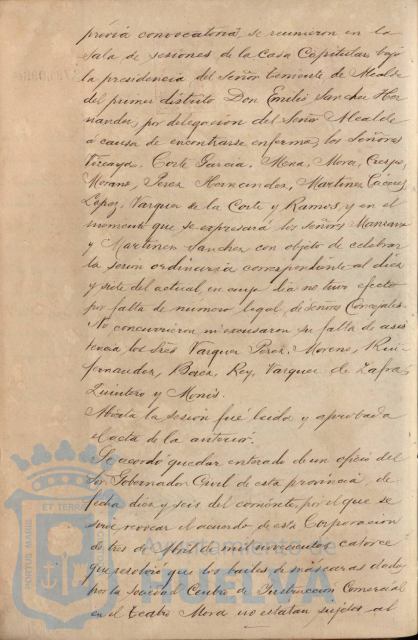 prévia convocatoria, se reunieron en la
sala de sesiones de la Casa Capitular bajo
la presidencia del Señor Teniente de Alcalde
del primer distrito Don Emilio Sanchez Her-
nandez, por delegacion del Señor Alcalde
á causa de encontrarse enfermo, los Señores
Vizcaya, Corte Garcia, Mena, Mora, Crespo,
Morano, Perez Hernandez, Martinez Cáceres,
Lopez, Vazquez de la Corte y Ramos, y en el
momento que se expresará los Señores Manzano
y Martinez Sanchez con objeto de celebrar
la sesion ordinaria correspondiente al diez
y siete del actual, en cuyo dia no tuvo efecto
por falta de numero legal de Señores Concejales.
No concurrieron ni escusaron su falta de asis-
tencia, los Sres Vazquez Perez, Moreno, Ruif-
fernandez, Borea, Rey, Vazquez de Zafra,
Quintero y Monis.
Abierta la sesión fué leida y aprobada
el acta de la anterior.
Se acordó quedar enterado de un oficio del
Sor. Gobernador Civil de esta provincia, de
fecha diez y seis del corriente, por el que se
sirve revocar el acuerdo de esta Corporacion
de tres de Abril de mil novecientos catorce
que resolvió que los bailes de máscaras dados
por la Sociedad Centro de Instruccion Comercial
en el Teatro Mora no estaban sujetos al
PORTUS MARIS ET TERRAE
Ayuntamiento de
HUELVA